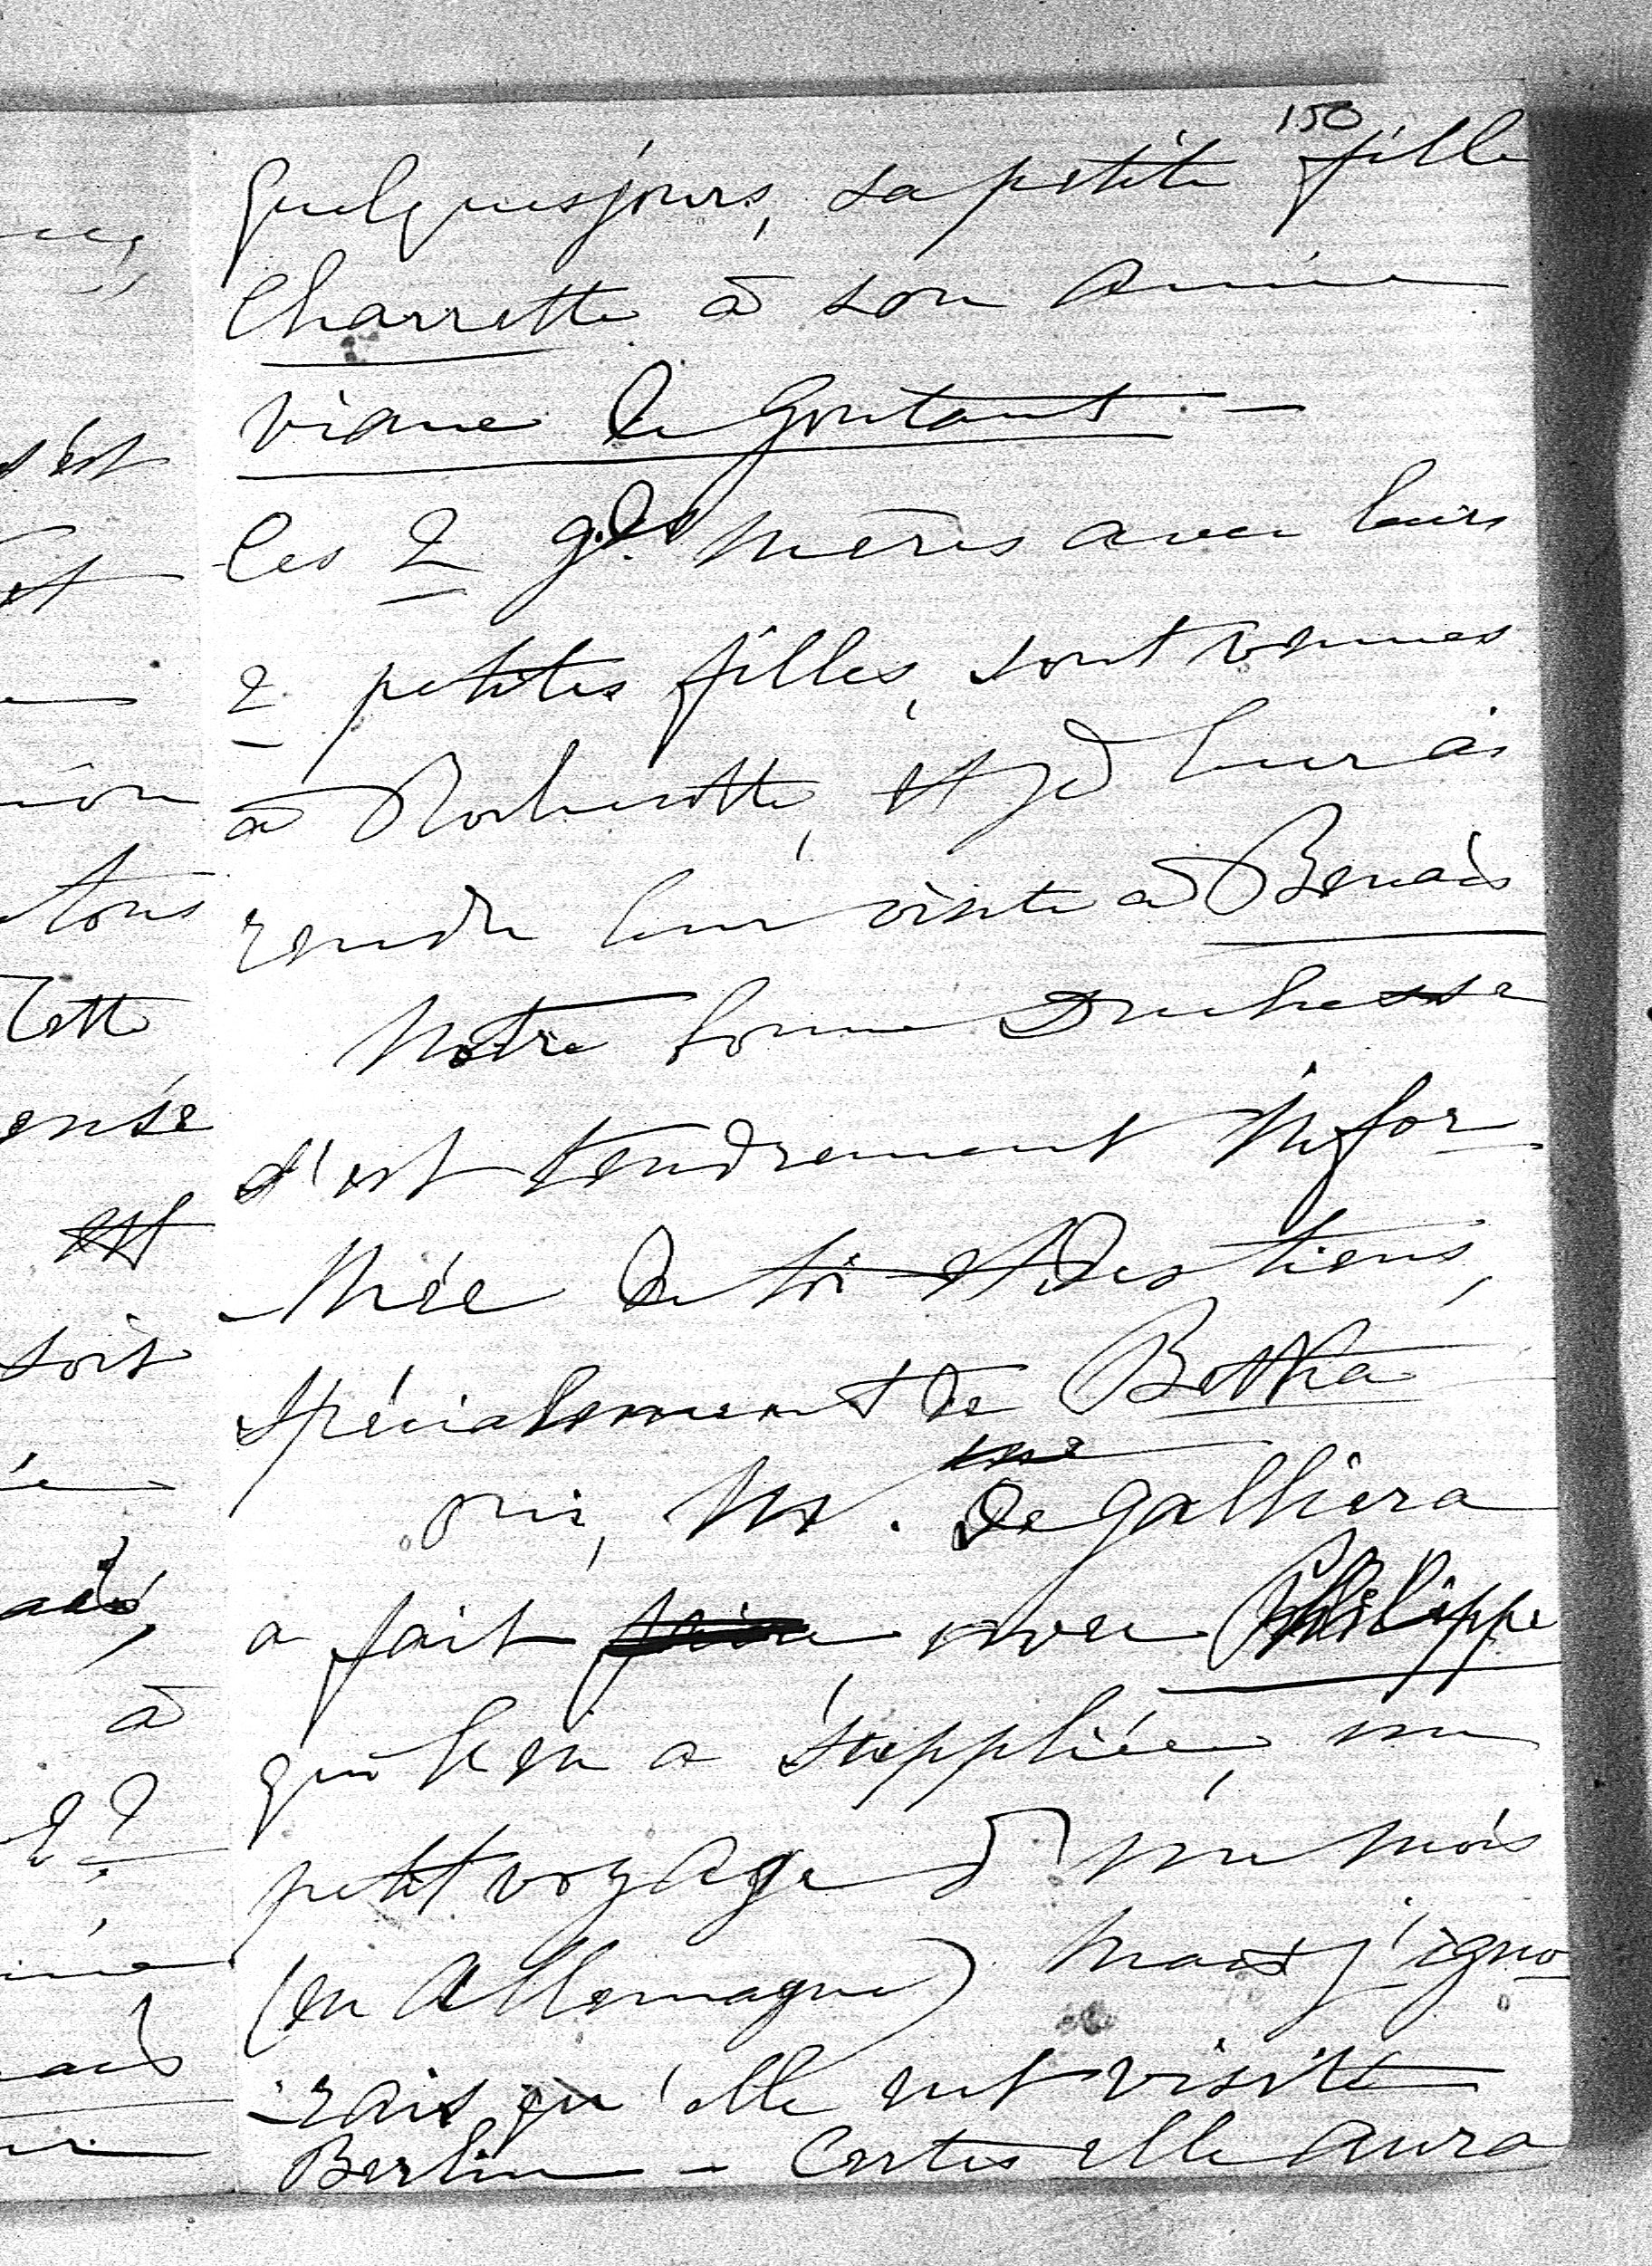 150
quelques jours, sa petite fille
Charrette à son amie
de Gontaut —
Les 2 gdes mères avec leurs
2 petites filles, sont venues
à Rochecotte, et je leur ai
rendu leur visite à Benais
Notre bonne Duchesse
s'est tendrement infor-
-mée de toi et des tiens,
spécialement de
oui, Me de Galliera
a fait avec Philippe
qui l'en a suppliée, un
petit voyage d'un mois
(en Allemagne) mais j'igno-
-rais qu'elle eut visité
Berlin — Certes elle aura